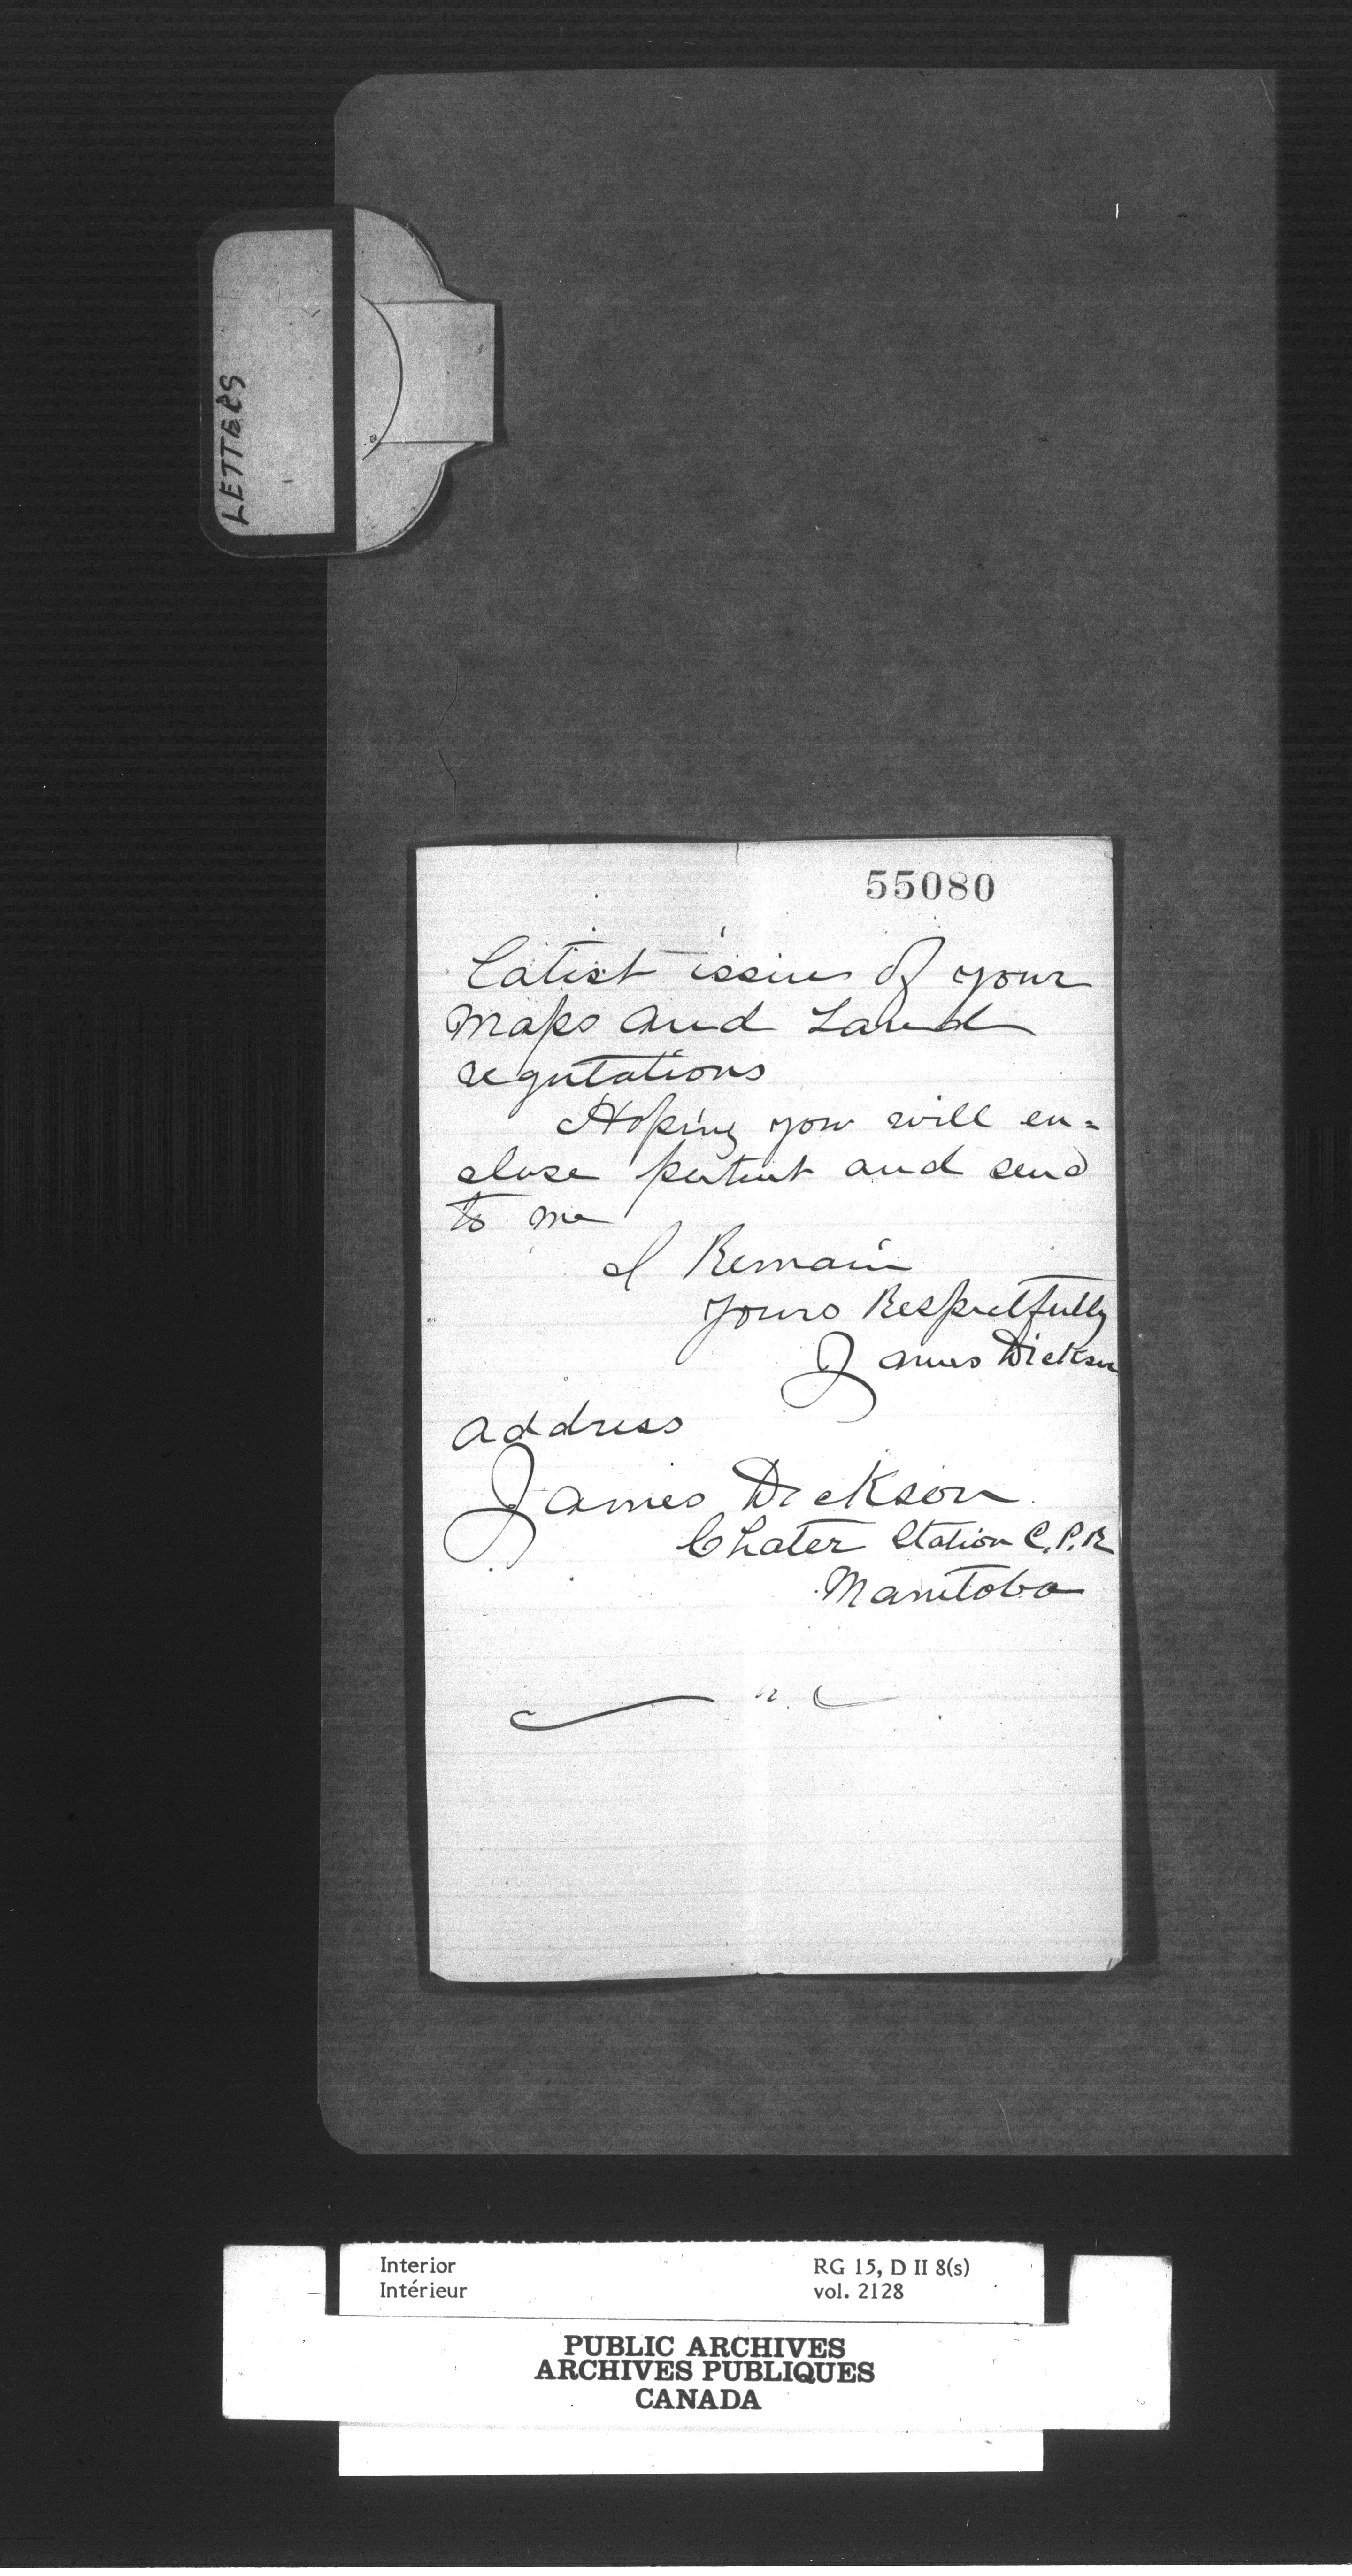 LETTERS
55080
latest issues of your
Maps and Land
regutations
Hoping you will en=
close patent and send
to me
I Remain
Yours Respectfully
James Dickson
address
James Dickson
Chater Station C.P.R
Manitoba
Interior RG 15, D II 8(s)
Intérieur vol. 2128
PUBLIC ARCHIVES
ARCHIVES PUBLIQUES
CANADA